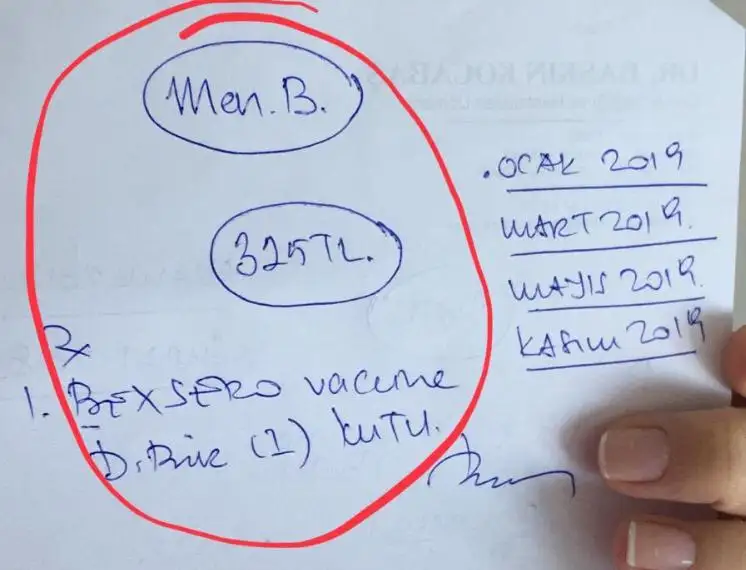 Men. B.
325 TL.
Rx
1. BEXSERO vaccine
D. Bir (1) kutu.
. OCAK 2019
MART 2019.
MAYIS 2019.
KASIM 2019